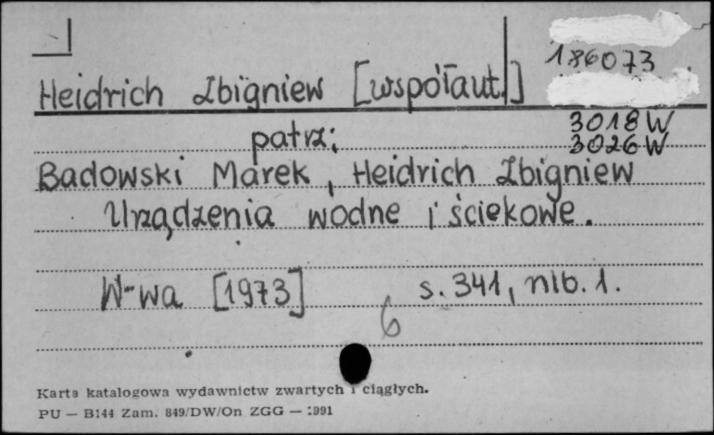 186073
Heidrich Zbigniew [współaut.]
3018 W
patrz: 3026 W
Badowski Marek, Heidrich Zbigniew
Urządzenia wodne i ściekowe.
W-wa [1973] s. 341, nlb. 1.
6
Karta katalogowa wydawnictw zwartych i ciągłych.
PU — B144 Zam. 849/DW/On ZGG — 1991